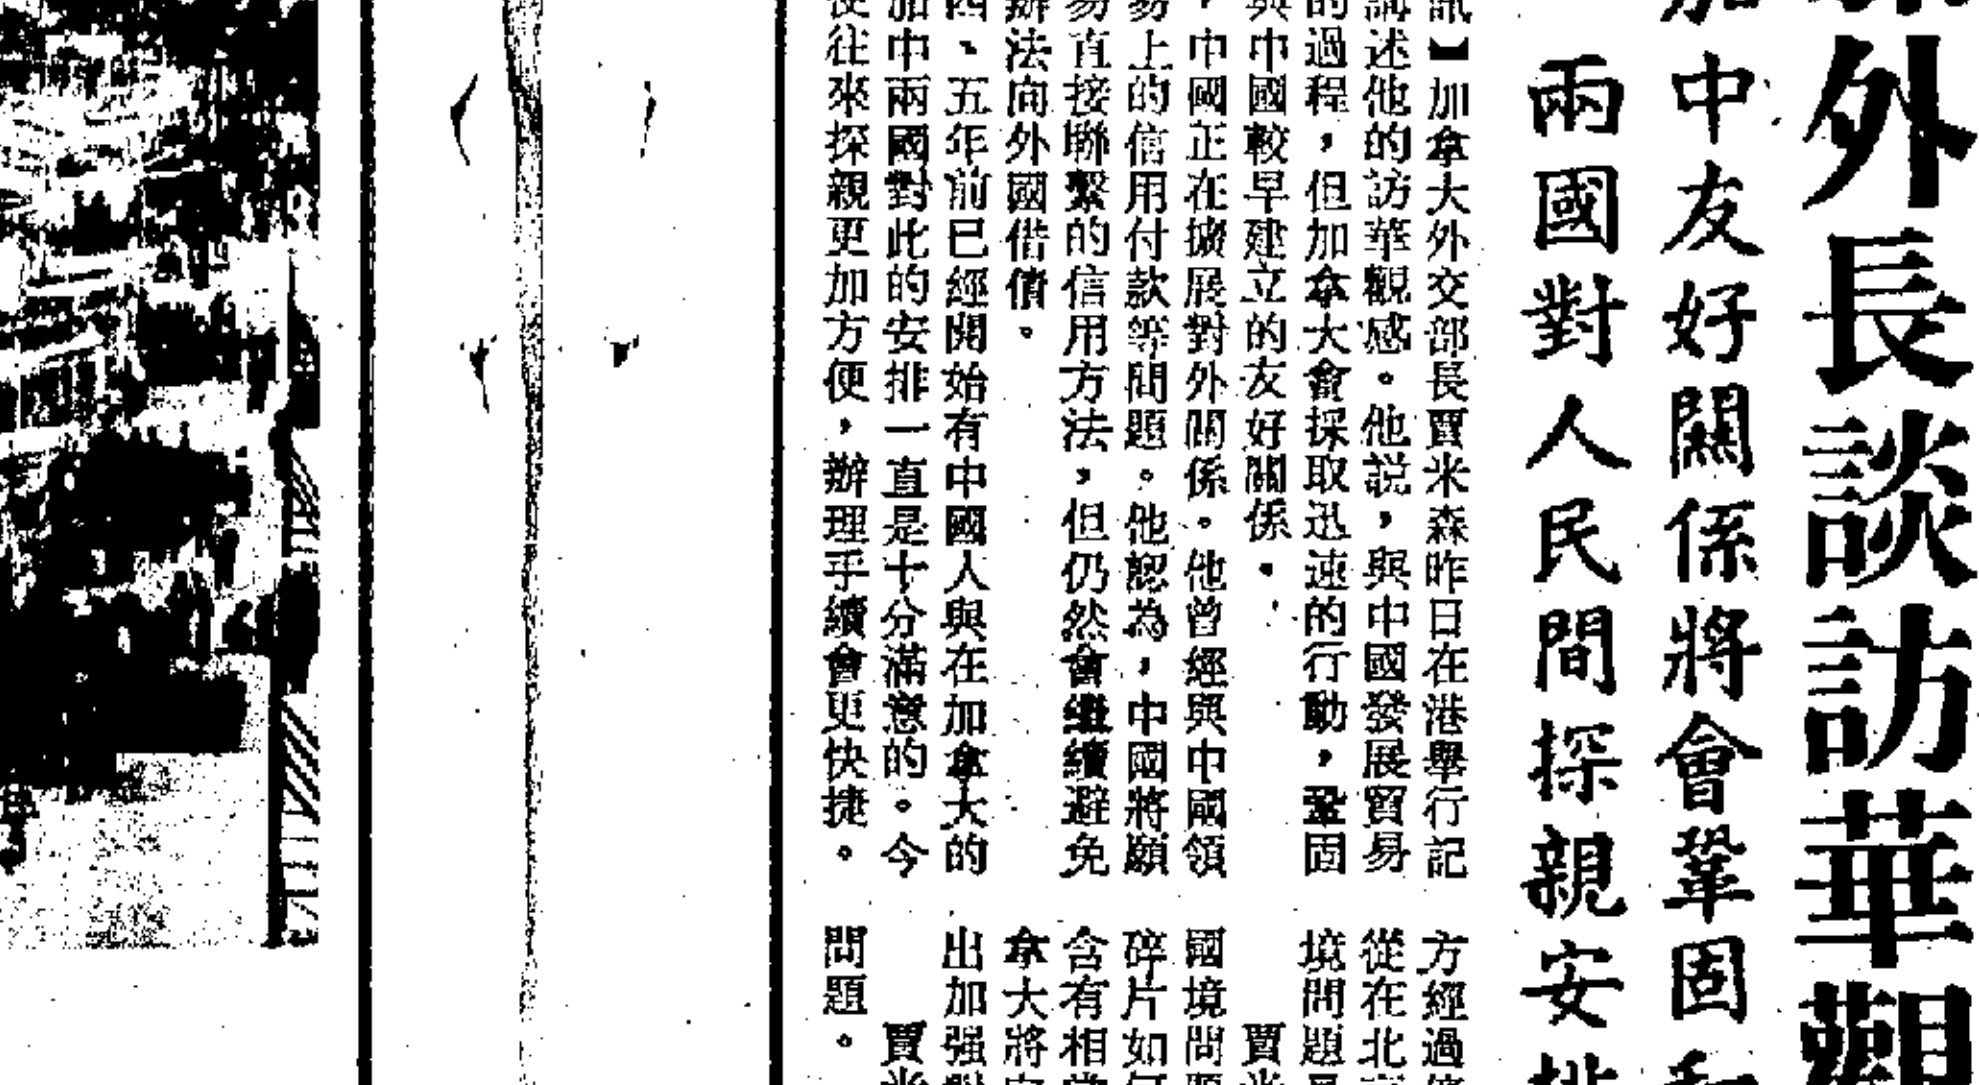 外長談訪華觀
中友好關係將會鞏固和
兩國對人民間探親安排
訊】加拿大外交部長賈米森昨日在港舉行記
講述他的訪華觀感。他説，與中國發展貿易
的過程，但加拿大會採取迅速的行動，鞏固
與中國較早建立的友好關係。
，中國正在擴展對外關係。他曾經與中國領
易上的信用付款等問題。他認為，中國將願
易直接聯繫的信用方法，但仍然會繼續避免
辦法向外國借債。
四、五年前已經開始有中國人與在加拿大的
加中兩國對此的安排一直是十分滿意的。今
往來探親更加方便，辦理手續會更快捷。
方經過
從在北
境問題
賈米
國境問題
碎片如何
含有相當
拿大將
出加强對
賈米
問題。